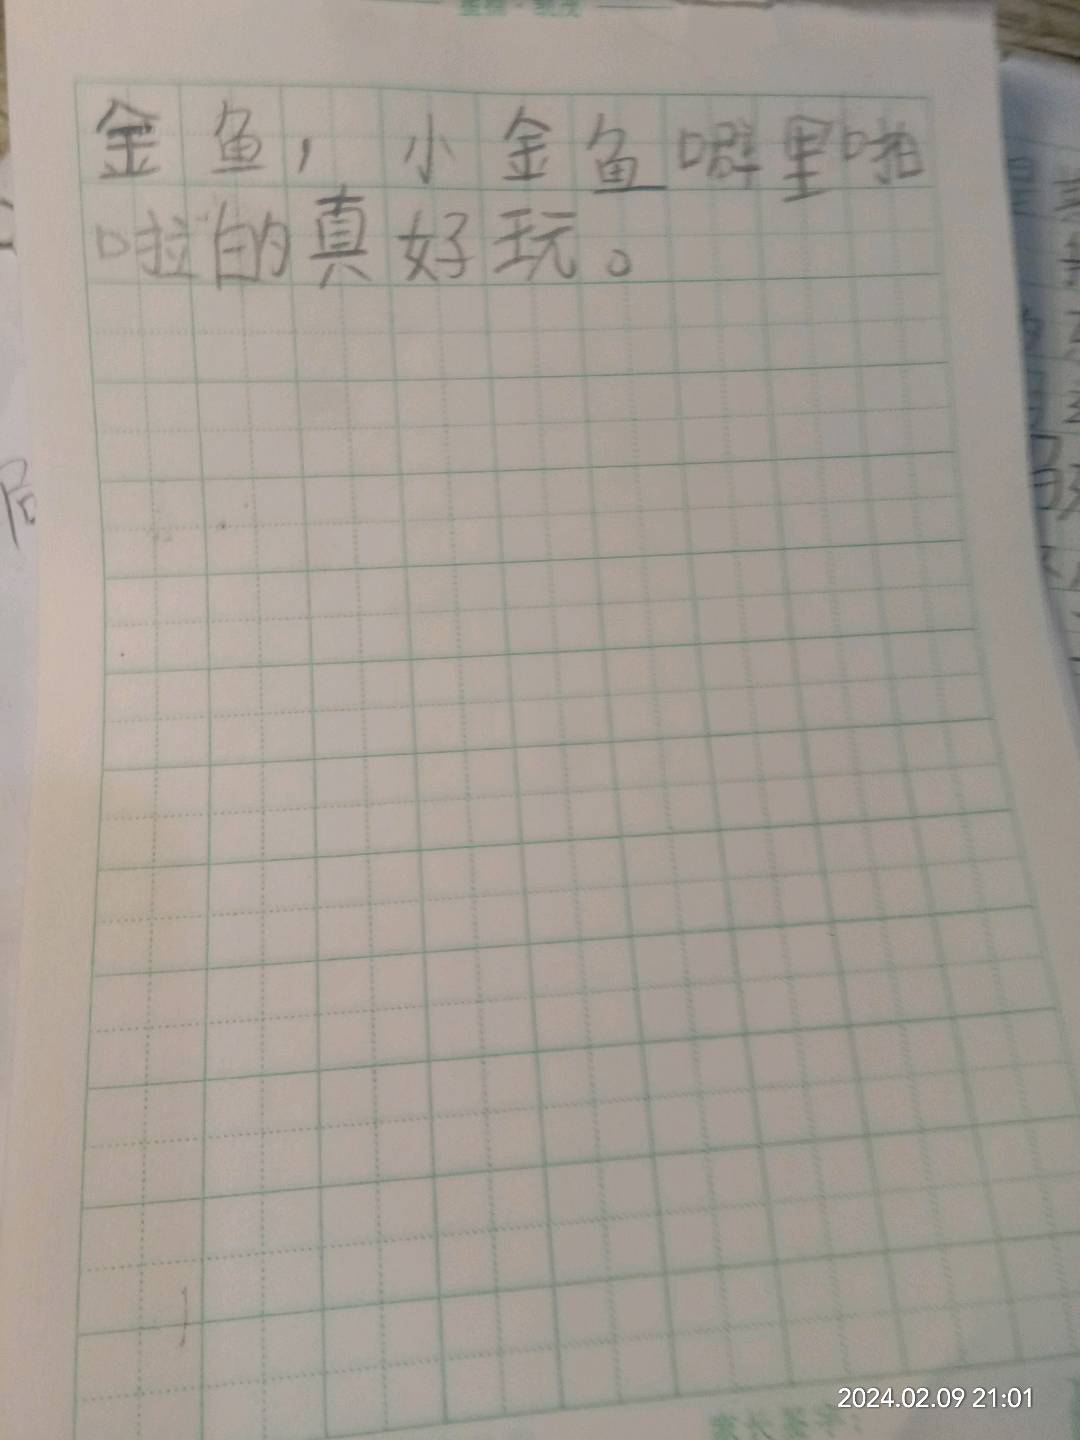 金鱼，小金鱼噼里啪
啦的真好玩。
2024.02.09 21:01